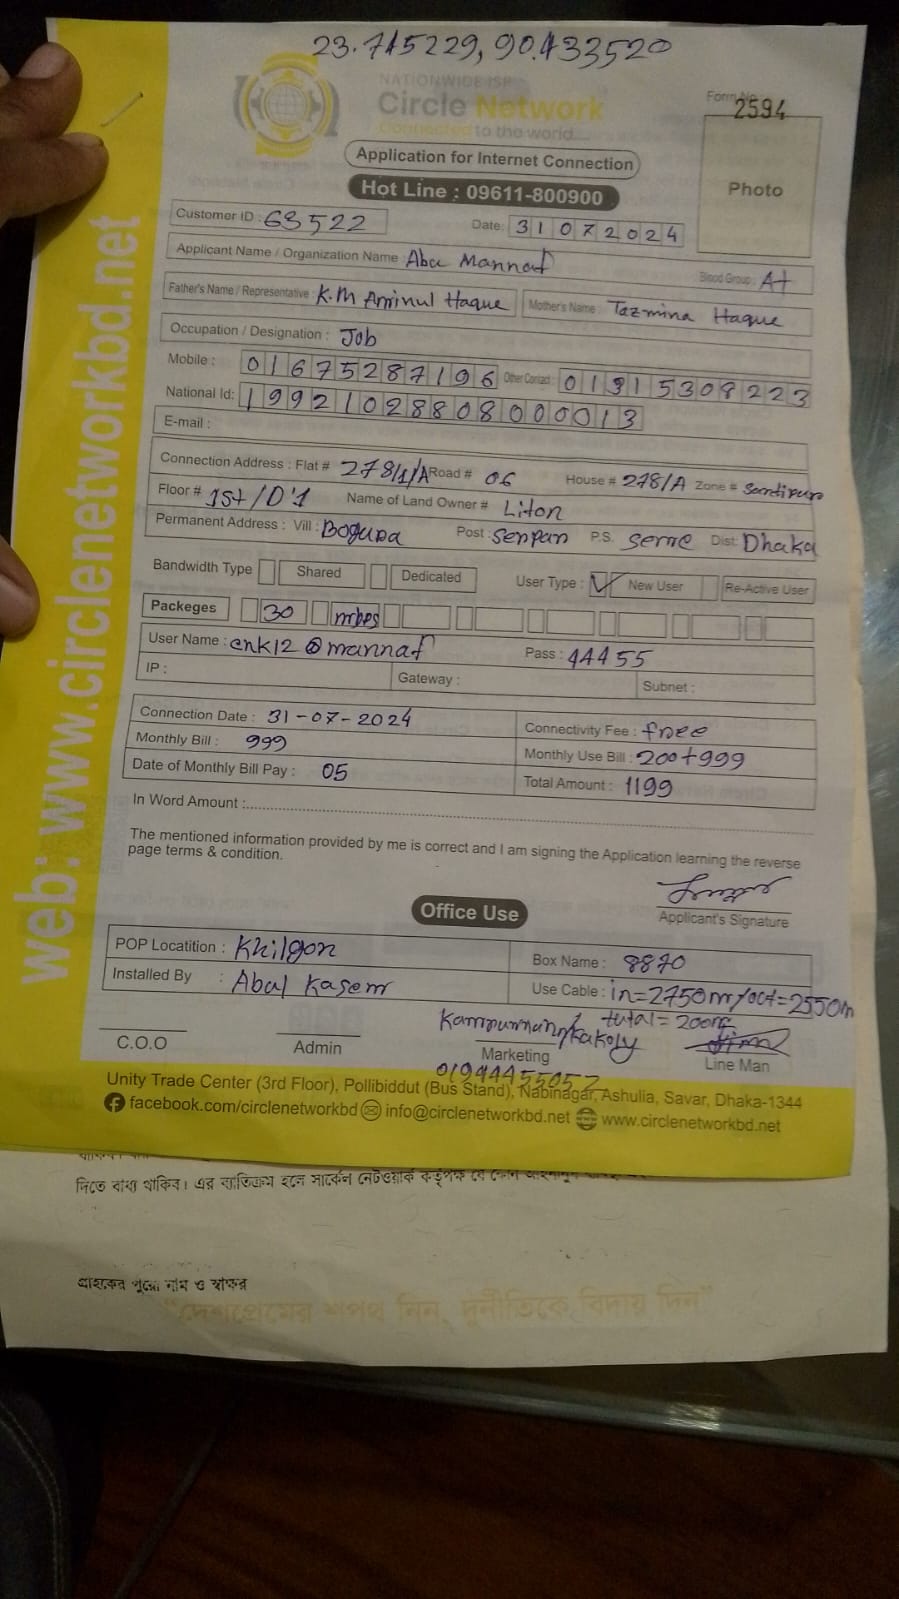 23.715229, 90.433520
NATIONWIDE ISP
Circle Network
Connected to the world....
Form No : 2594
Application for Internet Connection
Hot Line : 09611-800900
Photo
Customer ID : 63522 Date: 31072024
Applicant Name / Organization Name : Abu Mannaf Blood Group : A+
Father's Name / Representative : K.M Aminul Haque Mother's Name : Tazmina Haque
Occupation / Designation : Job
Mobile : 01675287196 Other Contact : 01915308223
National Id: 19921028808000013
E-mail :
Connection Address : Flat # 278/1/A Road # 06 House # 278/A Zone #
Floor # 1st/D'1 Name of Land Owner # Liton
Permanent Address : Vill : Bogura Post : Senpan P.S. Dist: Dhaka
Bandwidth Type Shared Dedicated User Type : ✓ New User Re-Active User
Packeges 30 mbps
User Name : cnk12@mannaf Pass : 44455
IP : Gateway : Subnet :
Connection Date : 31-07-2024 Connectivity Fee : free
Monthly Bill : 999 Monthly Use Bill : 200+999
Date of Monthly Bill Pay : 05 Total Amount : 1199
In Word Amount :
The mentioned information provided by me is correct and I am signing the Application learning the reverse
page terms & condition.
Applicant's Signature
Office Use
POP Locatition : Khilgon Box Name : 8870
Installed By : Abul Kasem Use Cable : in=2750m/out=2550m
total=200m
C.O.O Admin Marketing Line Man
Unity Trade Center (3rd Floor), Pollibiddut (Bus Stand), Nabinagar, Ashulia, Savar, Dhaka-1344
facebook.com/circlenetworkbd info@circlenetworkbd.net www.circlenetworkbd.net
web: www.circlenetworkbd.net
দিতে বাধ্য থাকিব। এর ব্যতিক্রম হলে সার্কেল নেটওয়ার্ক কর্তৃপক্ষ যে কোন
গ্রাহকের পুরো নাম ও স্বাক্ষর
“দেশপ্রেমের শপথ নিন, দুর্নীতিকে বিদায় দিন”